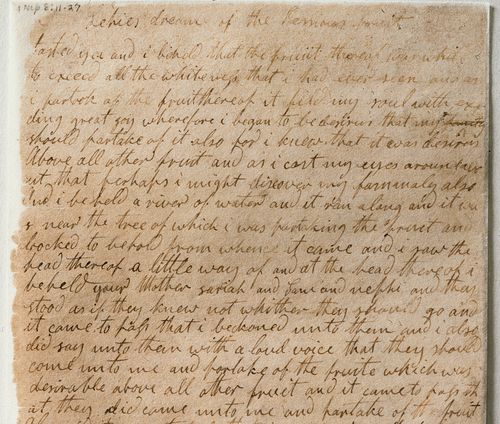 1 Nep 8:11-27
Lehies dream of the
tasted yea and i beheld that the fruit thereof was whit
to exceed all the whiteness that i had ever seen and as
i partook of the fruit thereof it fild my soul with exe
ding great joy wherefore i began to be desirus that my
should partake of it also for i knew that it was desirus
above all other fruit and as i cast my eyes around
out that perhaps i might discover my fammaly also
and i beheld a river of water and it ran along and it wa
s near the tree of which i was partaking the fruit and
i looked to behold from whence it came and i saw the
head thereof a little way of and at the head thereof i
beheld your Mother sariah and Sam and nephi and they
stood as if they knew not whither they should go and
it came to pass that i beckoned unto them and i also
did say unto them with a loud voice that they should
come unto me and partake of the fruite which was
desirable above all other fruit and it came to pass th
at they did came unto me and partake of the fruit